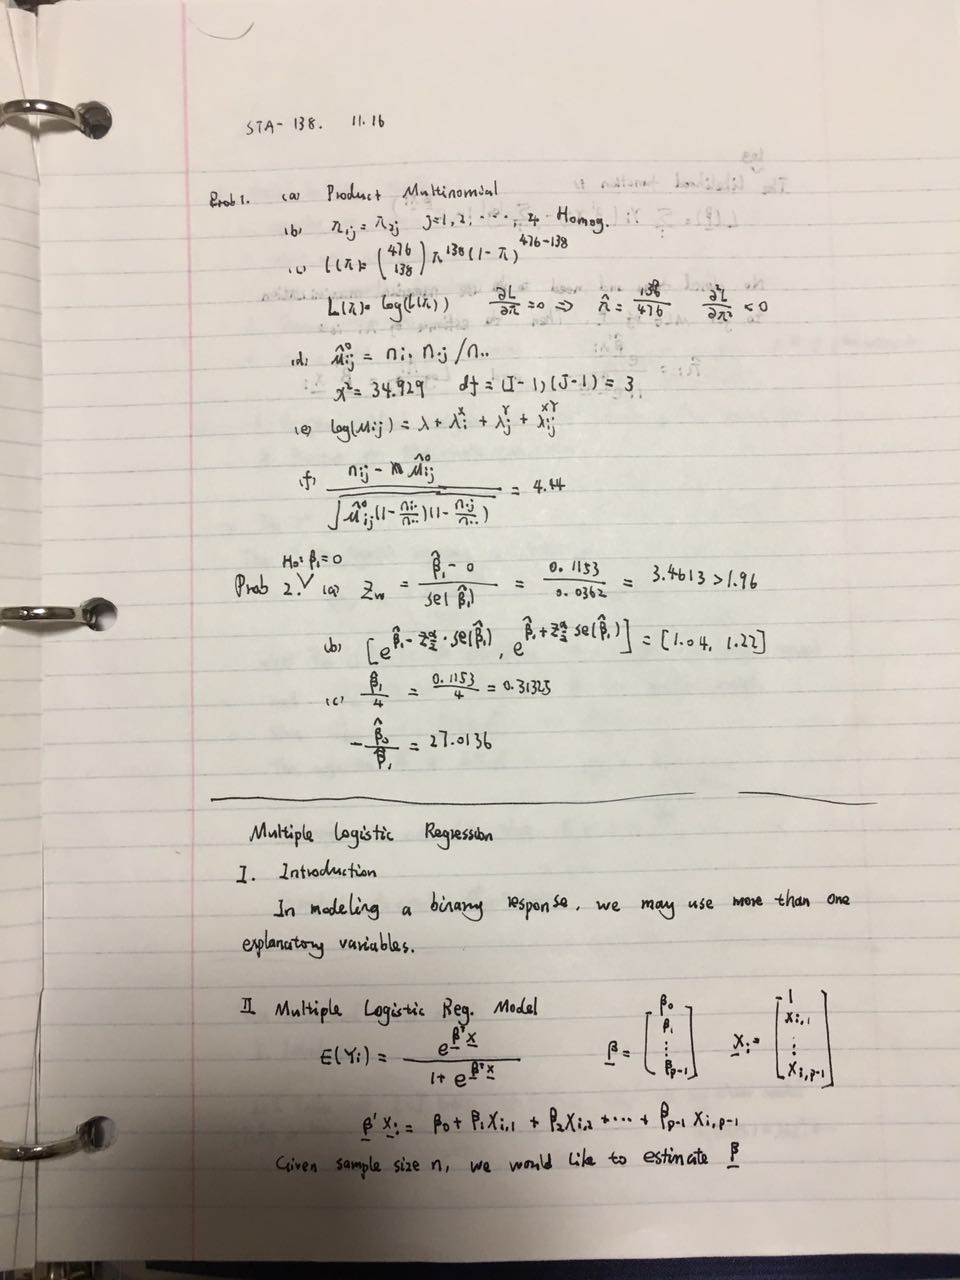 STA-138. 11.16
Prob 1. (a) Product Multinomial
(b) π₁ⱼ = π₂ⱼ j=1, 2, ..., 4 Homog.
(c) l(π)= (476 138) π^138 (1-π)^476-138
L(π)= log(l(π)) ∂L/∂π =0 ⇒ π̂ = 138/476 ∂²L/∂π² < 0
(d) μ̂⁰ᵢⱼ = nᵢ. n.ⱼ / n..
x² = 34.929 df = (I-1)(J-1) = 3
(e) log(μᵢⱼ) = λ + λᵢ^X + λⱼ^Y + λᵢⱼ^XY
(f) (nᵢⱼ - μ̂⁰ᵢⱼ) / √(μ̂⁰ᵢⱼ(1-nᵢ./n..)(1-n.ⱼ/n..)) = 4.44
H₀: β₁=0
Prob 2. (a) Zw = (β̂₁ - 0)/se(β̂₁) = 0.1153/0.0362 = 3.4613 > 1.96
(b) [e^(β̂₁ - z α/2 · se(β̂₁)), e^(β̂₁ + z α/2 se(β̂₁))] = [1.04, 1.22]
(c) β̂₁/4 = 0.1153/4 = 0.31325
- β̂₀/β̂₁ = 27.0136
Multiple Logistic Regression
I. Introduction
In modeling a binary response, we may use more than one
explanatory variables.
II Multiple Logistic Reg. Model
E(Yᵢ) = e^(β'x) / (1+ e^(β'x)) β = [β₀ β₁ ⋮ βp-1] Xᵢ = [1 Xi,1 ⋮ Xi,p-1]
β'Xᵢ = β₀ + β₁Xi,1 + β₂Xi,2 + ... + βp-1 Xi,p-1
Given sample size n, we would like to estimate β